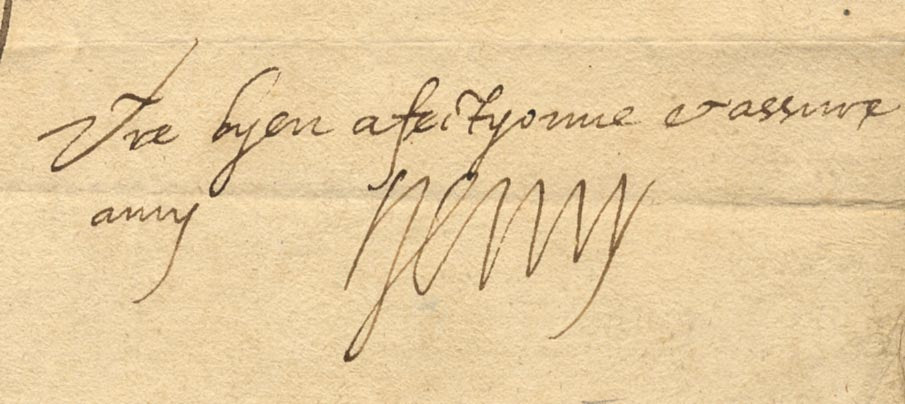 Vre byen afectyonne et assure
amy Henry